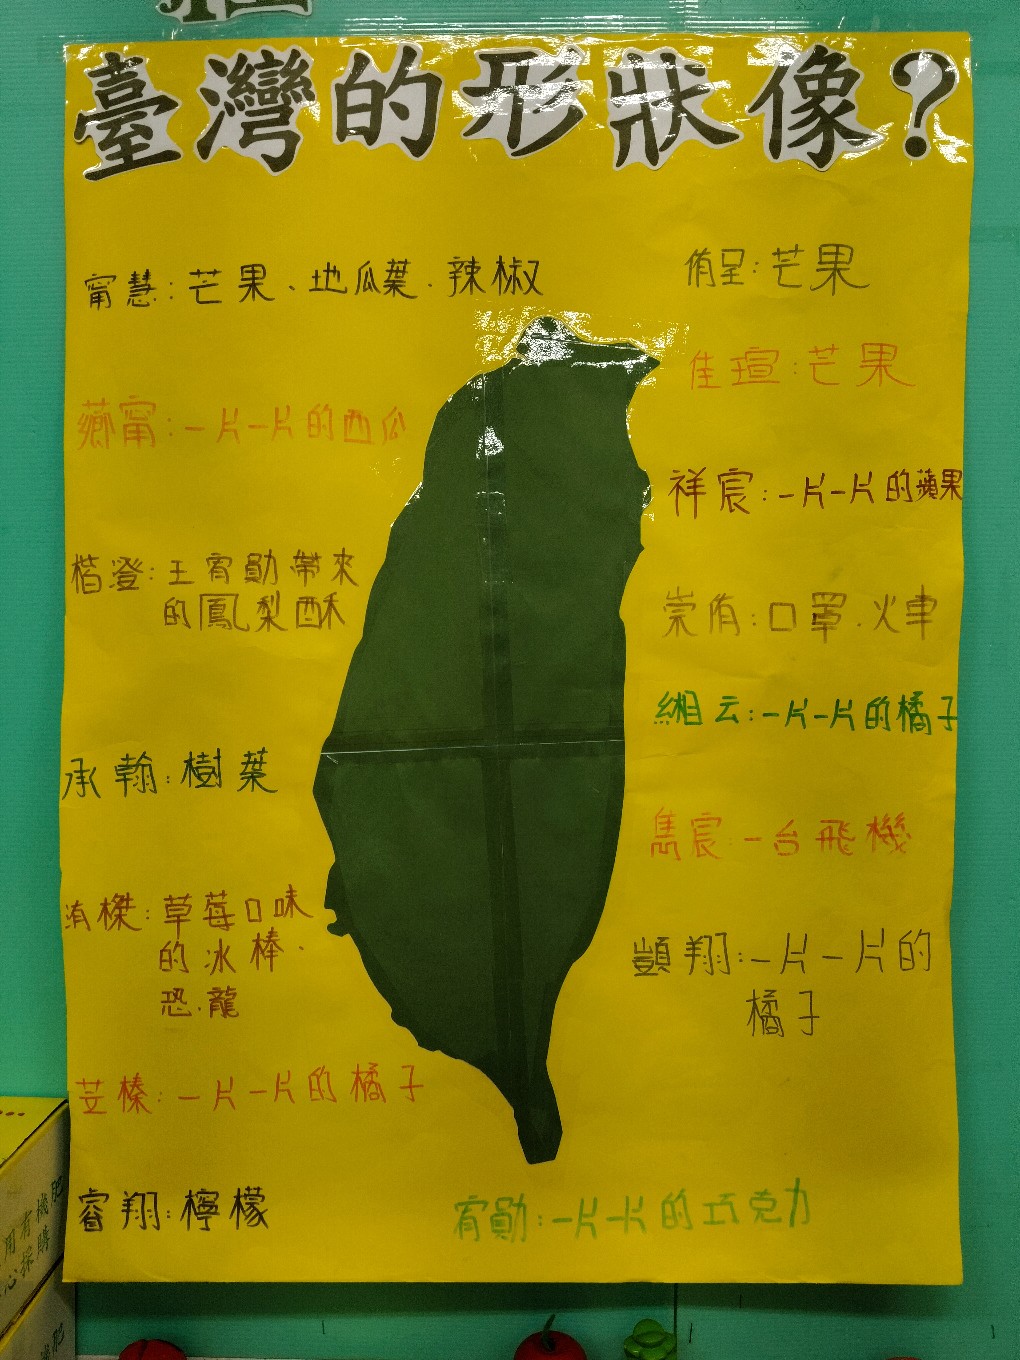 臺灣的形狀像?
甯慧:芒果、地瓜葉、辣椒
侑呈:芒果
佳瑄:芒果
薌甯:一片一片的西瓜
祥宸:一片一片的蘋果
楷澄:王宥勛帶來
的鳳梨酥
崇侑:口罩、火車
緗云:一片一片的橘子
承翰:樹葉
雋宸一台飛機
洧榤:草莓口味
的冰棒、
恐龍
顗翔:一片一片的
橘子
芷榛:一片一片的橘子
睿翔:檸檬
宥勛:一片一片的巧克力
有機肥
用
心採購
肥